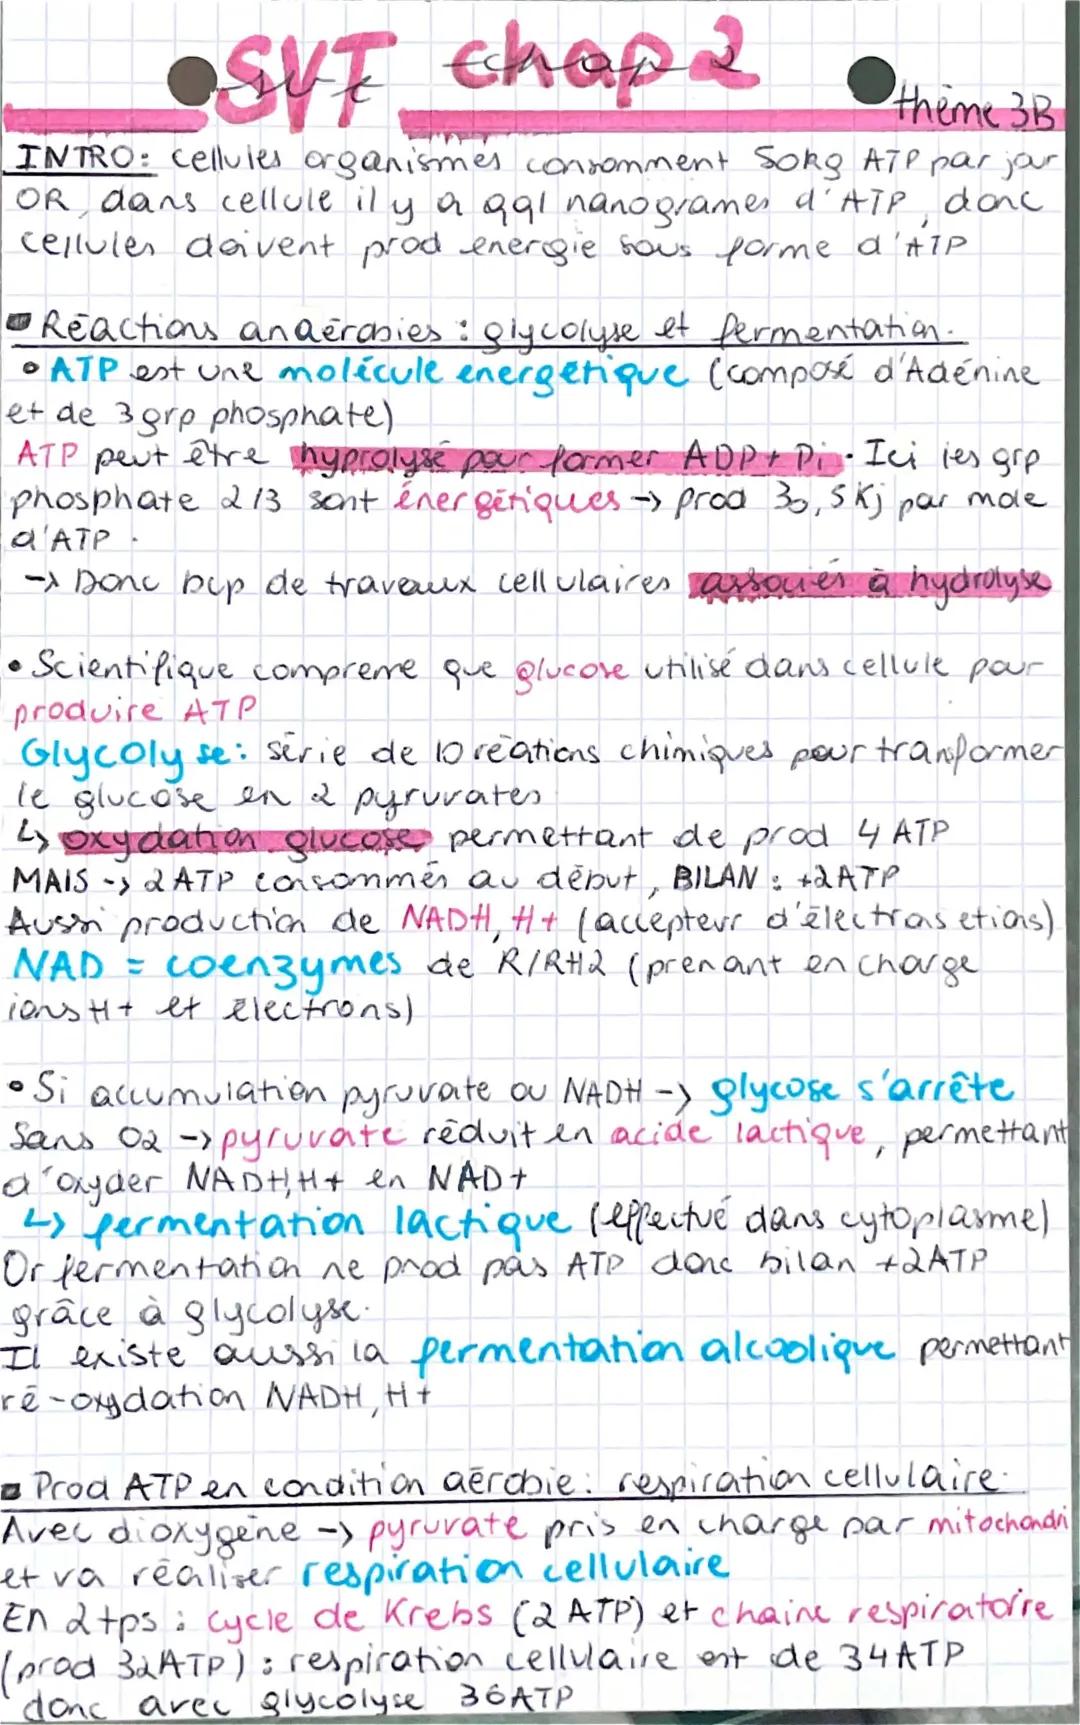 SVT chap 2
svt chap 2
thème 3B
INTRO: cellules organismes consomment 50kg ATP par jour
OR, dans cellule il y a qql nanogrames d'ATP, donc
cellules doivent prod energie sous forme d'ATP
Réactions anaérobies : glycolyse et fermentation.
• ATP est une molécule energétique (composé d'Adénine
et de 3 grp phosphate)
ATP peut être hyprolysé pour former ADP + Pi. Ici les grp
phosphate 2/3 sont énergétiques -> prod 30,5 Kj par mole
d'ATP.
-> Donc bcp de travaux cellulaires associés à hydrolyse
• Scientifique compreme que glucose utilisé dans cellule pour
produire ATP
Glycolyse: série de 10 réations chimiques pour tranformer
le glucose en 2 pyruvates
↳ oxydation glucose permettant de prod 4 ATP
MAIS -> 2 ATP consommés au début, BILAN : +2ATP
Aussi production de NADH, H+ (accepteur d'électrons et ions)
NAD = coenzymes de R/RH2 (prenant en charge
ions H+ et électrons)
• Si accumulation pyruvate ou NADH -> glycose s'arrête
Sans O2 -> pyruvate réduit en acide lactique, permettant
d'oxyder NADH,H+ en NAD+
↳ fermentation lactique (effectué dans cytoplasme)
Or fermentation ne prod pas ATP donc bilan +2ATP
grâce à glycolyse.
Il existe aussi la fermentation alcoolique permettant
ré-oxydation NADH, H+
Prod ATP en condition aérobie : respiration cellulaire.
Avec dioxygène -> pyruvate pris en charge par mitochondri
et va réaliser respiration cellulaire
En 2 tps : cycle de Krebs (2 ATP) et chaine respiratoire
(prod 32ATP) : respiration cellulaire est de 34 ATP
donc avec glycolyse 36ATP